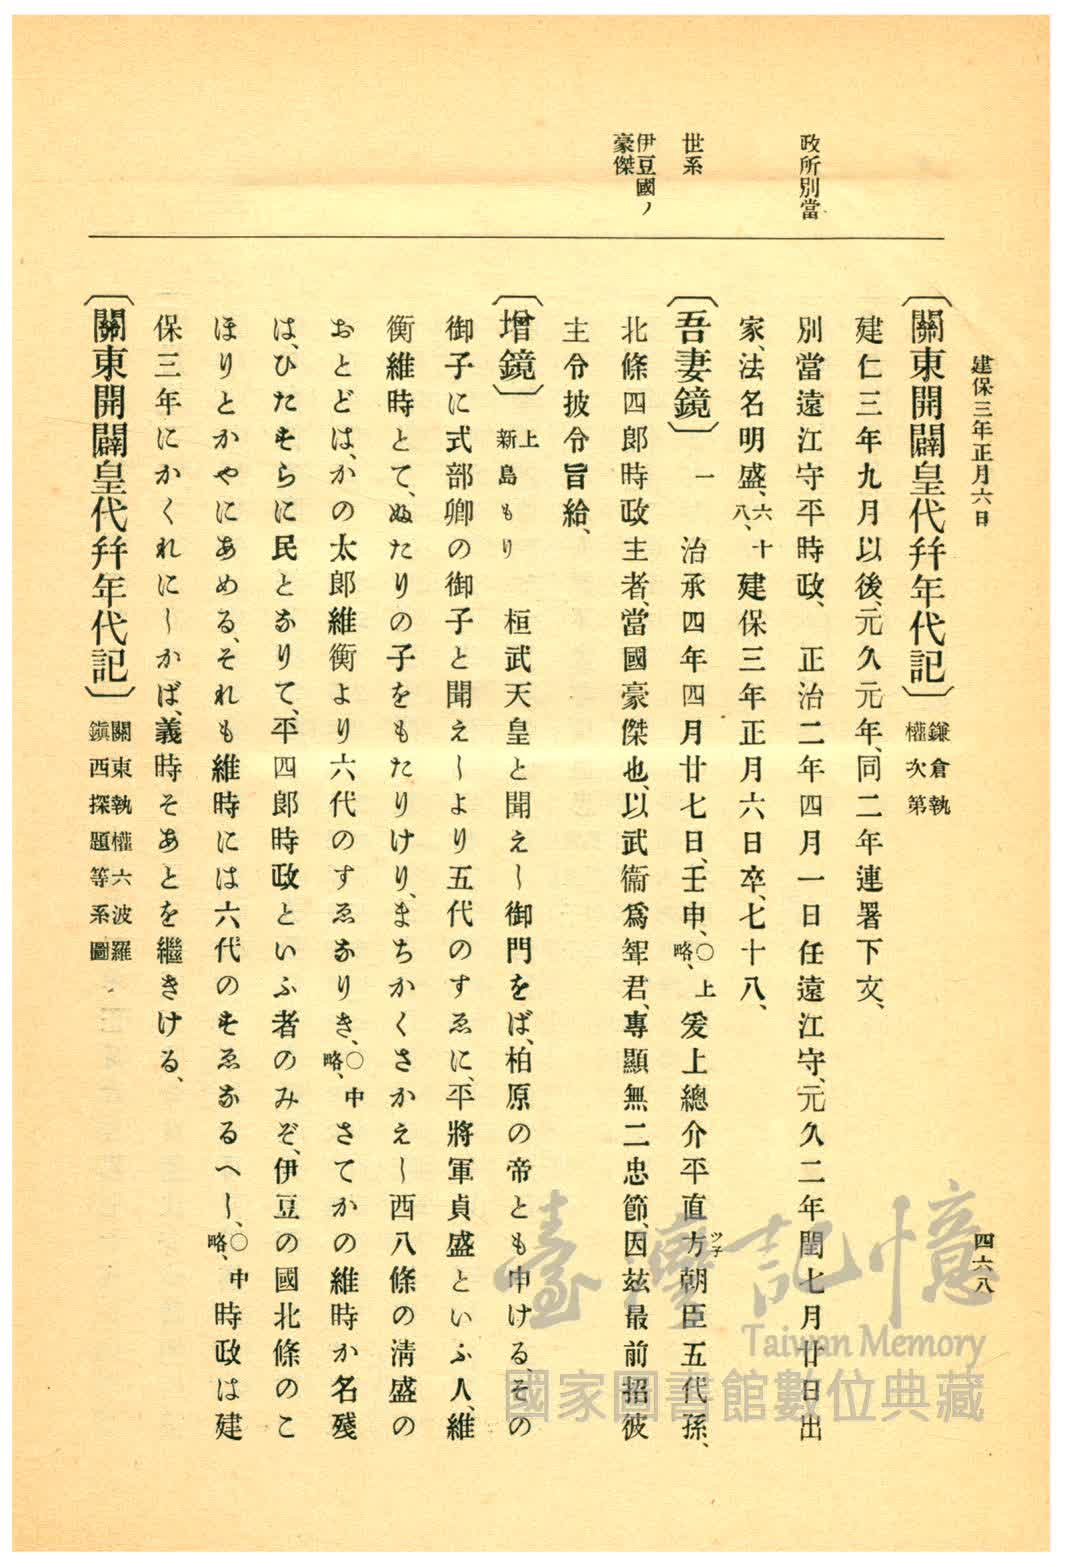 建保三年正月六日
四六八
政所別當
世系
伊豆國ノ
豪傑
〔關東開闢皇代幷年代記〕鎌倉執
權次第
建仁三年九月以後、元久元年、同二年連署下文、
別當遠江守平時政、　正治二年四月一日任遠江守、元久二年閏七月廿日出
家、法名明盛、六十八、建保三年正月六日卒、七十八、
〔吾妻鏡〕一　治承四年四月廿七日、壬申、〇上略、爰上總介平直方朝臣五代孫、
ツ子
北條四郎時政主者、當國豪傑也、以武衞爲聟君、專顯無二忠節、因玆最前招彼
主令披令旨給、
〔增鏡〕上
新島もり　桓武天皇と聞えし御門をば、柏原の帝とも申ける、その
御子に式部卿の御子と聞えしより五代のすゑに、平將軍貞盛といふ人、維
衡維時とて、ぬたりの子をもたりけり、まちかくさかえし西八條の淸盛の
おとどは、かの太郎維衡より六代のすゑなりき、〇中略、さてかの維時か名殘
は、ひたすらに民となりて、平四郎時政といふ者のみぞ、伊豆の國北條のこ
ほりとかやにあめる、それも維時には六代のすゑなるへし、〇中略、時政は建
保三年にかくれにしかば、義時そあとを繼きける、
〔關東開闢皇代幷年代記〕關東執權六波羅
鎭西探題等系圖
臺灣記憶
Taiwan Memory
國家圖書館數位典藏